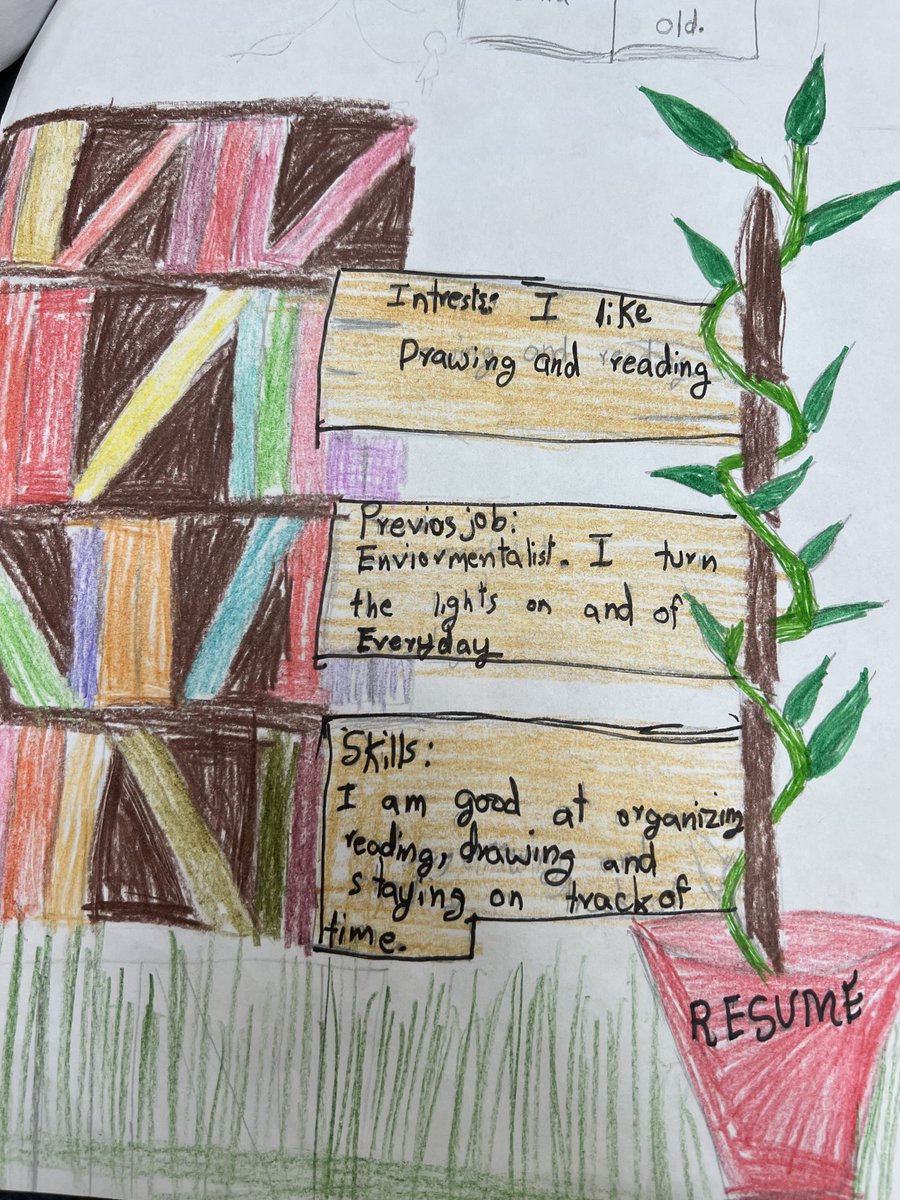 old.
Intrests: I like
Drawing and reading
Previos job:
Enviormentalist. I turn
the lights on and of
Everyday
Skills:
I am good at organizing
reading, drawing and
staying on track of
time.
RESUMÉ